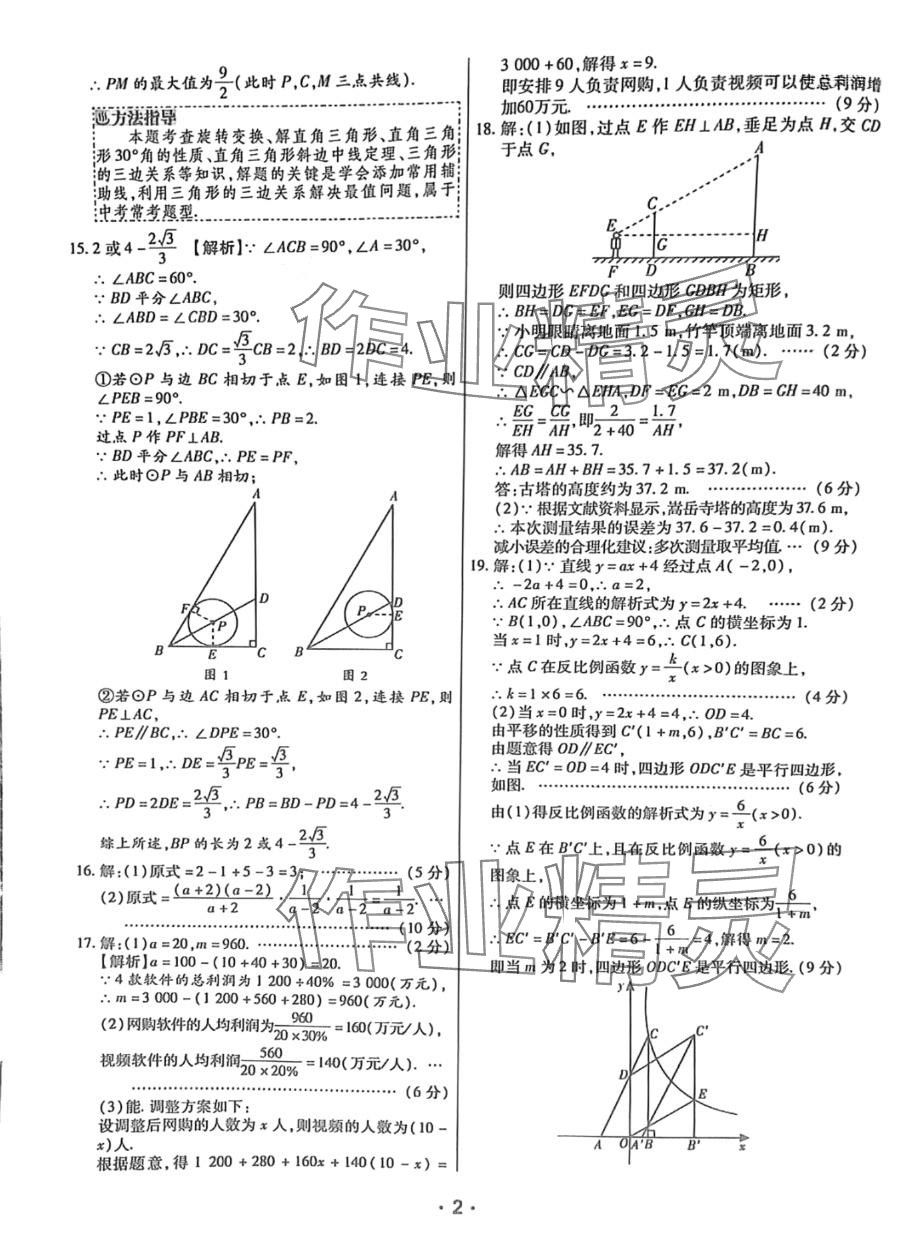 ∴ PM 的最大值为9/2(此时 P,C,M 三点共线).
方法指导
本题考查旋转变换、解直角三角形、直角三角
形30°角的性质、直角三角形斜边中线定理、三角形
的三边关系等知识,解题的关键是学会添加常用辅
助线,利用三角形的三边关系解决最值问题,属于
中考常考题型.
15. 2 或 4 - 2√3/3 【解析】∵ ∠ACB = 90°,∠A = 30°,
∴ ∠ABC = 60°.
∵ BD 平分∠ABC,
∴ ∠ABD = ∠CBD = 30°.
∵ CB = 2√3,∴ DC = √3/3 CB = 2,∴ BD = 2DC = 4.
①若⊙P 与边 BC 相切于点 E,如图 1,连接 PE,则
∠PEB = 90°.
∵ PE = 1,∠PBE = 30°,∴ PB = 2.
过点 P 作 PF⊥AB.
∵ BD 平分∠ABC,∴ PE = PF,
∴ 此时⊙P 与 AB 相切;
A
F
P
D
B
E
C
图 1
A
P
D
E
B
C
图 2
②若⊙P 与边 AC 相切于点 E,如图 2,连接 PE,则
PE⊥AC,
∴ PE∥BC,∴ ∠DPE = 30°.
∵ PE = 1,∴ DE = √3/3 PE = √3/3,
∴ PD = 2DE = 2√3/3,∴ PB = BD - PD = 4 - 2√3/3.
综上所述,BP 的长为 2 或 4 - 2√3/3.
16. 解:(1)原式 = 2 - 1 + 5 - 3 = 3; ……………… (5 分)
(2)原式 = (a+2)(a-2)/(a+2) · 1/(a-2) · 1/(a-2) = 1/(a-2). …
……………………………………… (10 分)
17. 解:(1)a = 20,m = 960. ……………………… (2 分)
【解析】a = 100 - (10 + 40 + 30) = 20.
∵ 4 款软件的总利润为 1 200 ÷ 40% = 3 000(万元),
∴ m = 3 000 - (1 200 + 560 + 280) = 960(万元).
(2)网购软件的人均利润为 960/(20×30%) = 160(万元/人),
视频软件的人均利润 560/(20×20%) = 140(万元/人). …
……………………………………… (6 分)
(3)能. 调整方案如下:
设调整后网购的人数为 x 人,则视频的人数为(10 -
x)人.
根据题意,得 1 200 + 280 + 160x + 140(10 - x) =
3 000 + 60,解得 x = 9.
即安排 9 人负责网购,1 人负责视频可以使总利润增
加60万元. ………………………………… (9 分)
18. 解:(1)如图,过点 E 作 EH⊥AB,垂足为点 H,交 CD
于点 G,
A
C
E
G
H
F
D
B
则四边形 EFDG 和四边形 GDBH 为矩形,
∴ BH = DG = EF,EG = DF,GH = DB.
∵ 小明眼睛离地面 1.5 m,竹竿顶端离地面 3.2 m,
∴ CG = CD - DG = 3.2 - 1.5 = 1.7(m). …… (2 分)
∵ CD∥AB,
∴ △EGC∽△EHA,DF = EG = 2 m,DB = GH = 40 m,
∴ EG/EH = CG/AH,即 2/(2+40) = 1.7/AH,
解得 AH = 35.7.
∴ AB = AH + BH = 35.7 + 1.5 = 37.2(m).
答:古塔的高度约为 37.2 m. ……………… (6 分)
(2)∵ 根据文献资料显示,嵩岳寺塔的高度为 37.6 m,
∴ 本次测量结果的误差为 37.6 - 37.2 = 0.4(m).
减小误差的合理化建议:多次测量取平均值. … (9 分)
19. 解:(1)∵ 直线 y = ax + 4 经过点 A( - 2,0),
∴ - 2a + 4 = 0,∴ a = 2,
∴ AC 所在直线的解析式为 y = 2x + 4. …… (2 分)
∵ B(1,0),∠ABC = 90°,∴ 点 C 的横坐标为 1.
当 x = 1 时,y = 2x + 4 = 6,∴ C(1,6).
∵ 点 C 在反比例函数 y = k/x (x > 0)的图象上,
∴ k = 1 × 6 = 6. ……………………… (4 分)
(2)当 x = 0 时,y = 2x + 4 = 4,∴ OD = 4.
由平移的性质得到 C′(1 + m,6),B′C′ = BC = 6.
由题意得 OD∥EC′,
∴ 当 EC′ = OD = 4 时,四边形 ODC′E 是平行四边形,
如图. ………………………………… (6 分)
由(1)得反比例函数的解析式为 y = 6/x (x > 0).
∵ 点 E 在 B′C′上,且在反比例函数 y = 6/x (x > 0)的
图象上,
∴ 点 E 的横坐标为 1 + m,点 E 的纵坐标为 6/(1+m),
∴ EC′ = B′C′ - B′E = 6 - 6/(1+m) = 4,解得 m = 2.
即当 m 为 2 时,四边形 ODC′E 是平行四边形. (9 分)
y
C
C′
D
E
A
O
A′
B
B′
x
· 2 ·
作业精灵
作业精灵